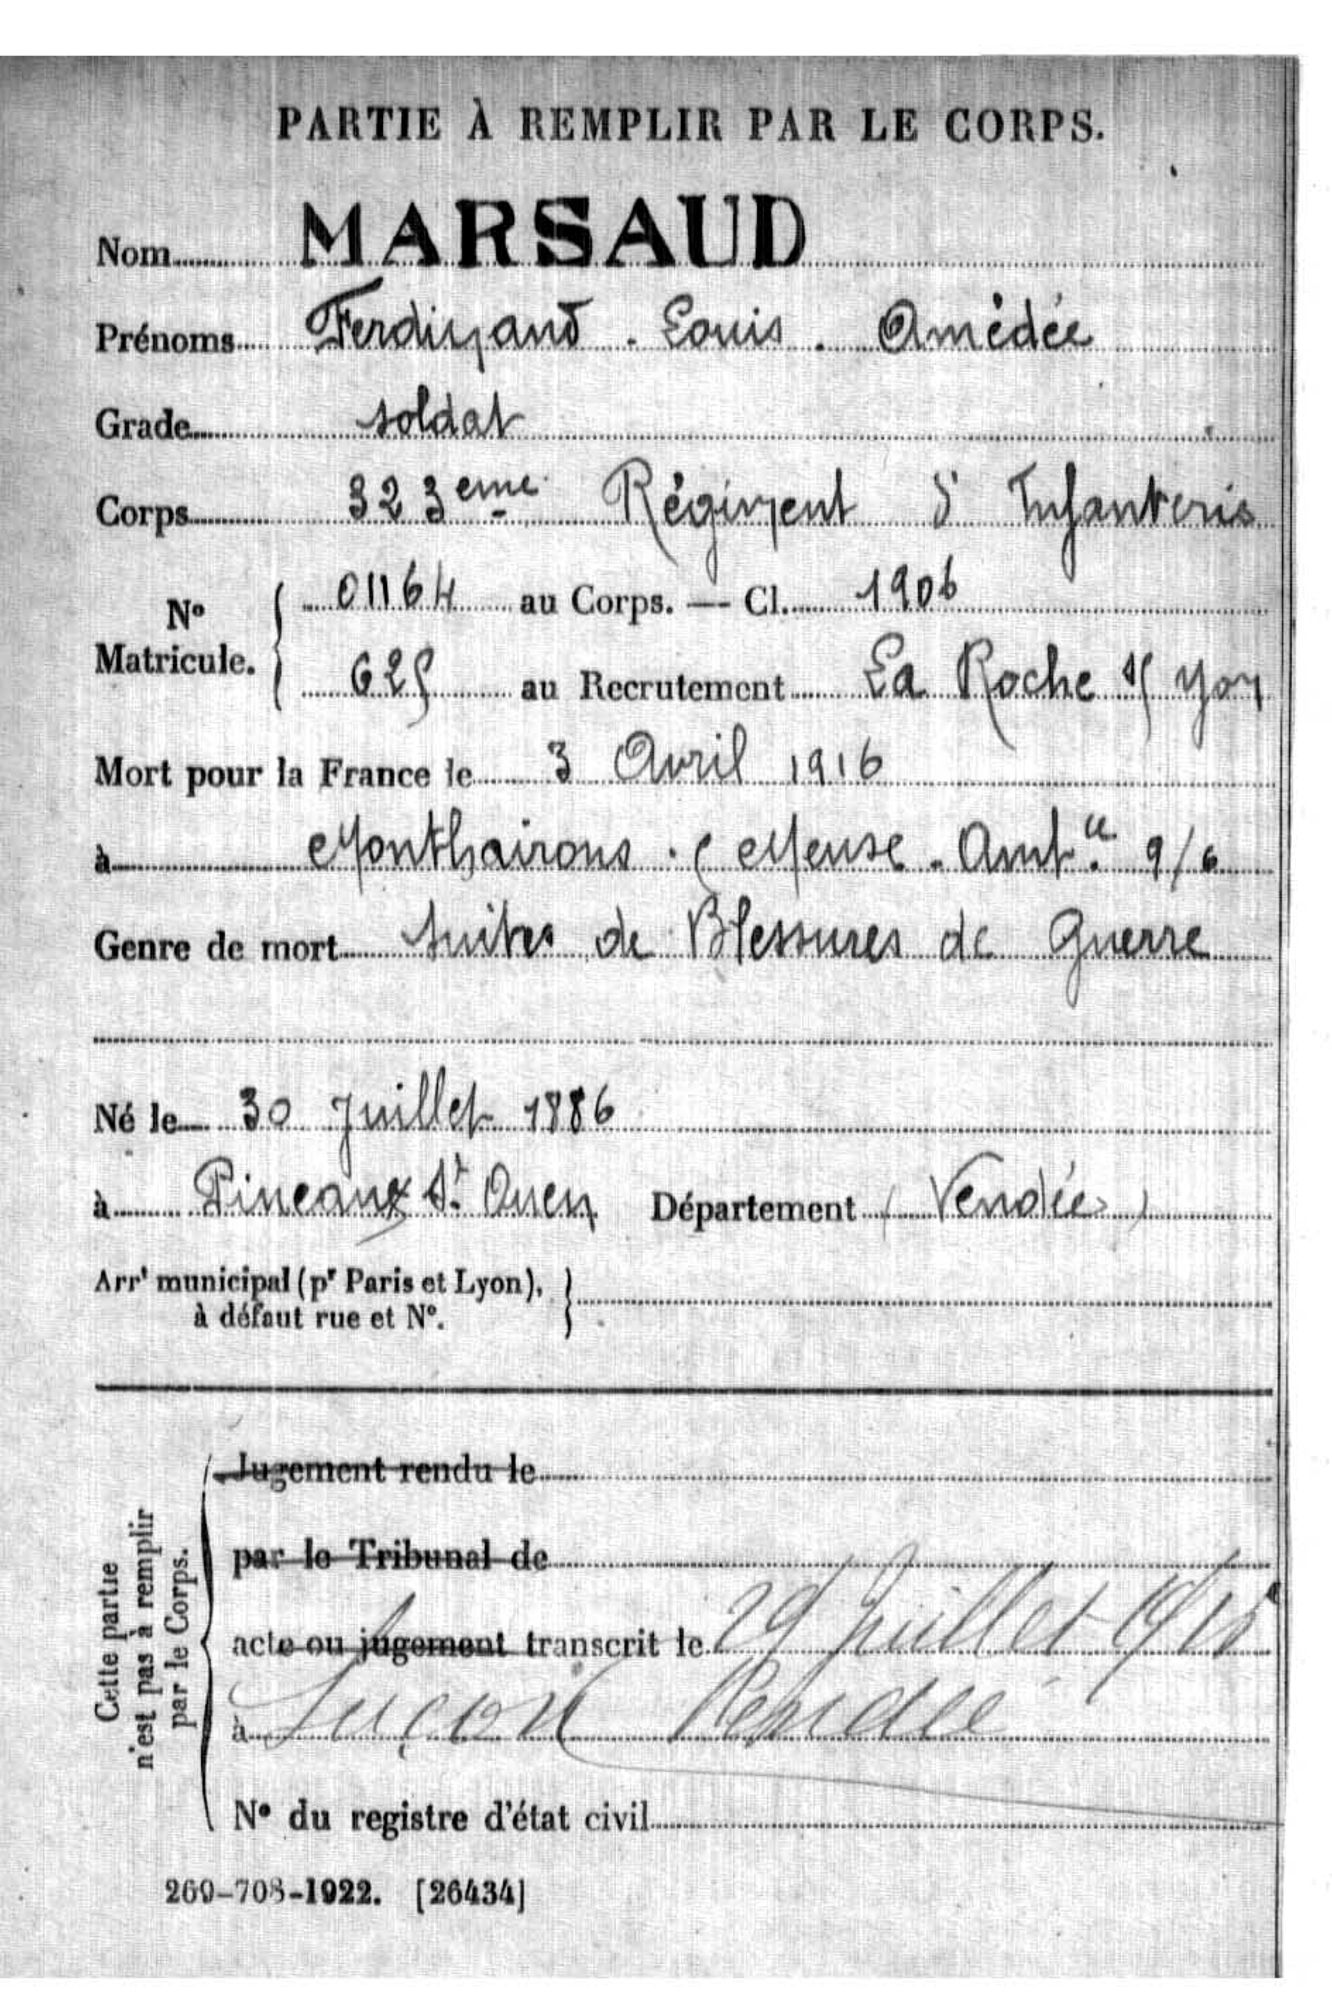 PARTIE À REMPLIR PAR LE CORPS.
Nom MARSAUD
Prénoms Ferdinand - Louis - Amédée
Grade soldat
Corps 323eme Régiment d'Infanterie
N° Matricule. 01164 au Corps. — Cl. 1906
625 au Recrutement La Roche s/ Yon
Mort pour la France le 3 Avril 1916
à Monthairons - ( Meuse - Amb.ce 9/6
Genre de mort suites de Blessures de Guerre
Né le 30 Juillet 1886
à Pineaux St Ouen Département ( Vendée )
Arrt municipal (pr Paris et Lyon),
à défaut rue et N°.
Cette partie
n'est pas à remplir
par le Corps.
Jugement rendu le
par le Tribunal de
acte ou jugement transcrit le 29 Juillet
à Luçon Vendée
N° du registre d'état civil
269-708-1922. [26434]